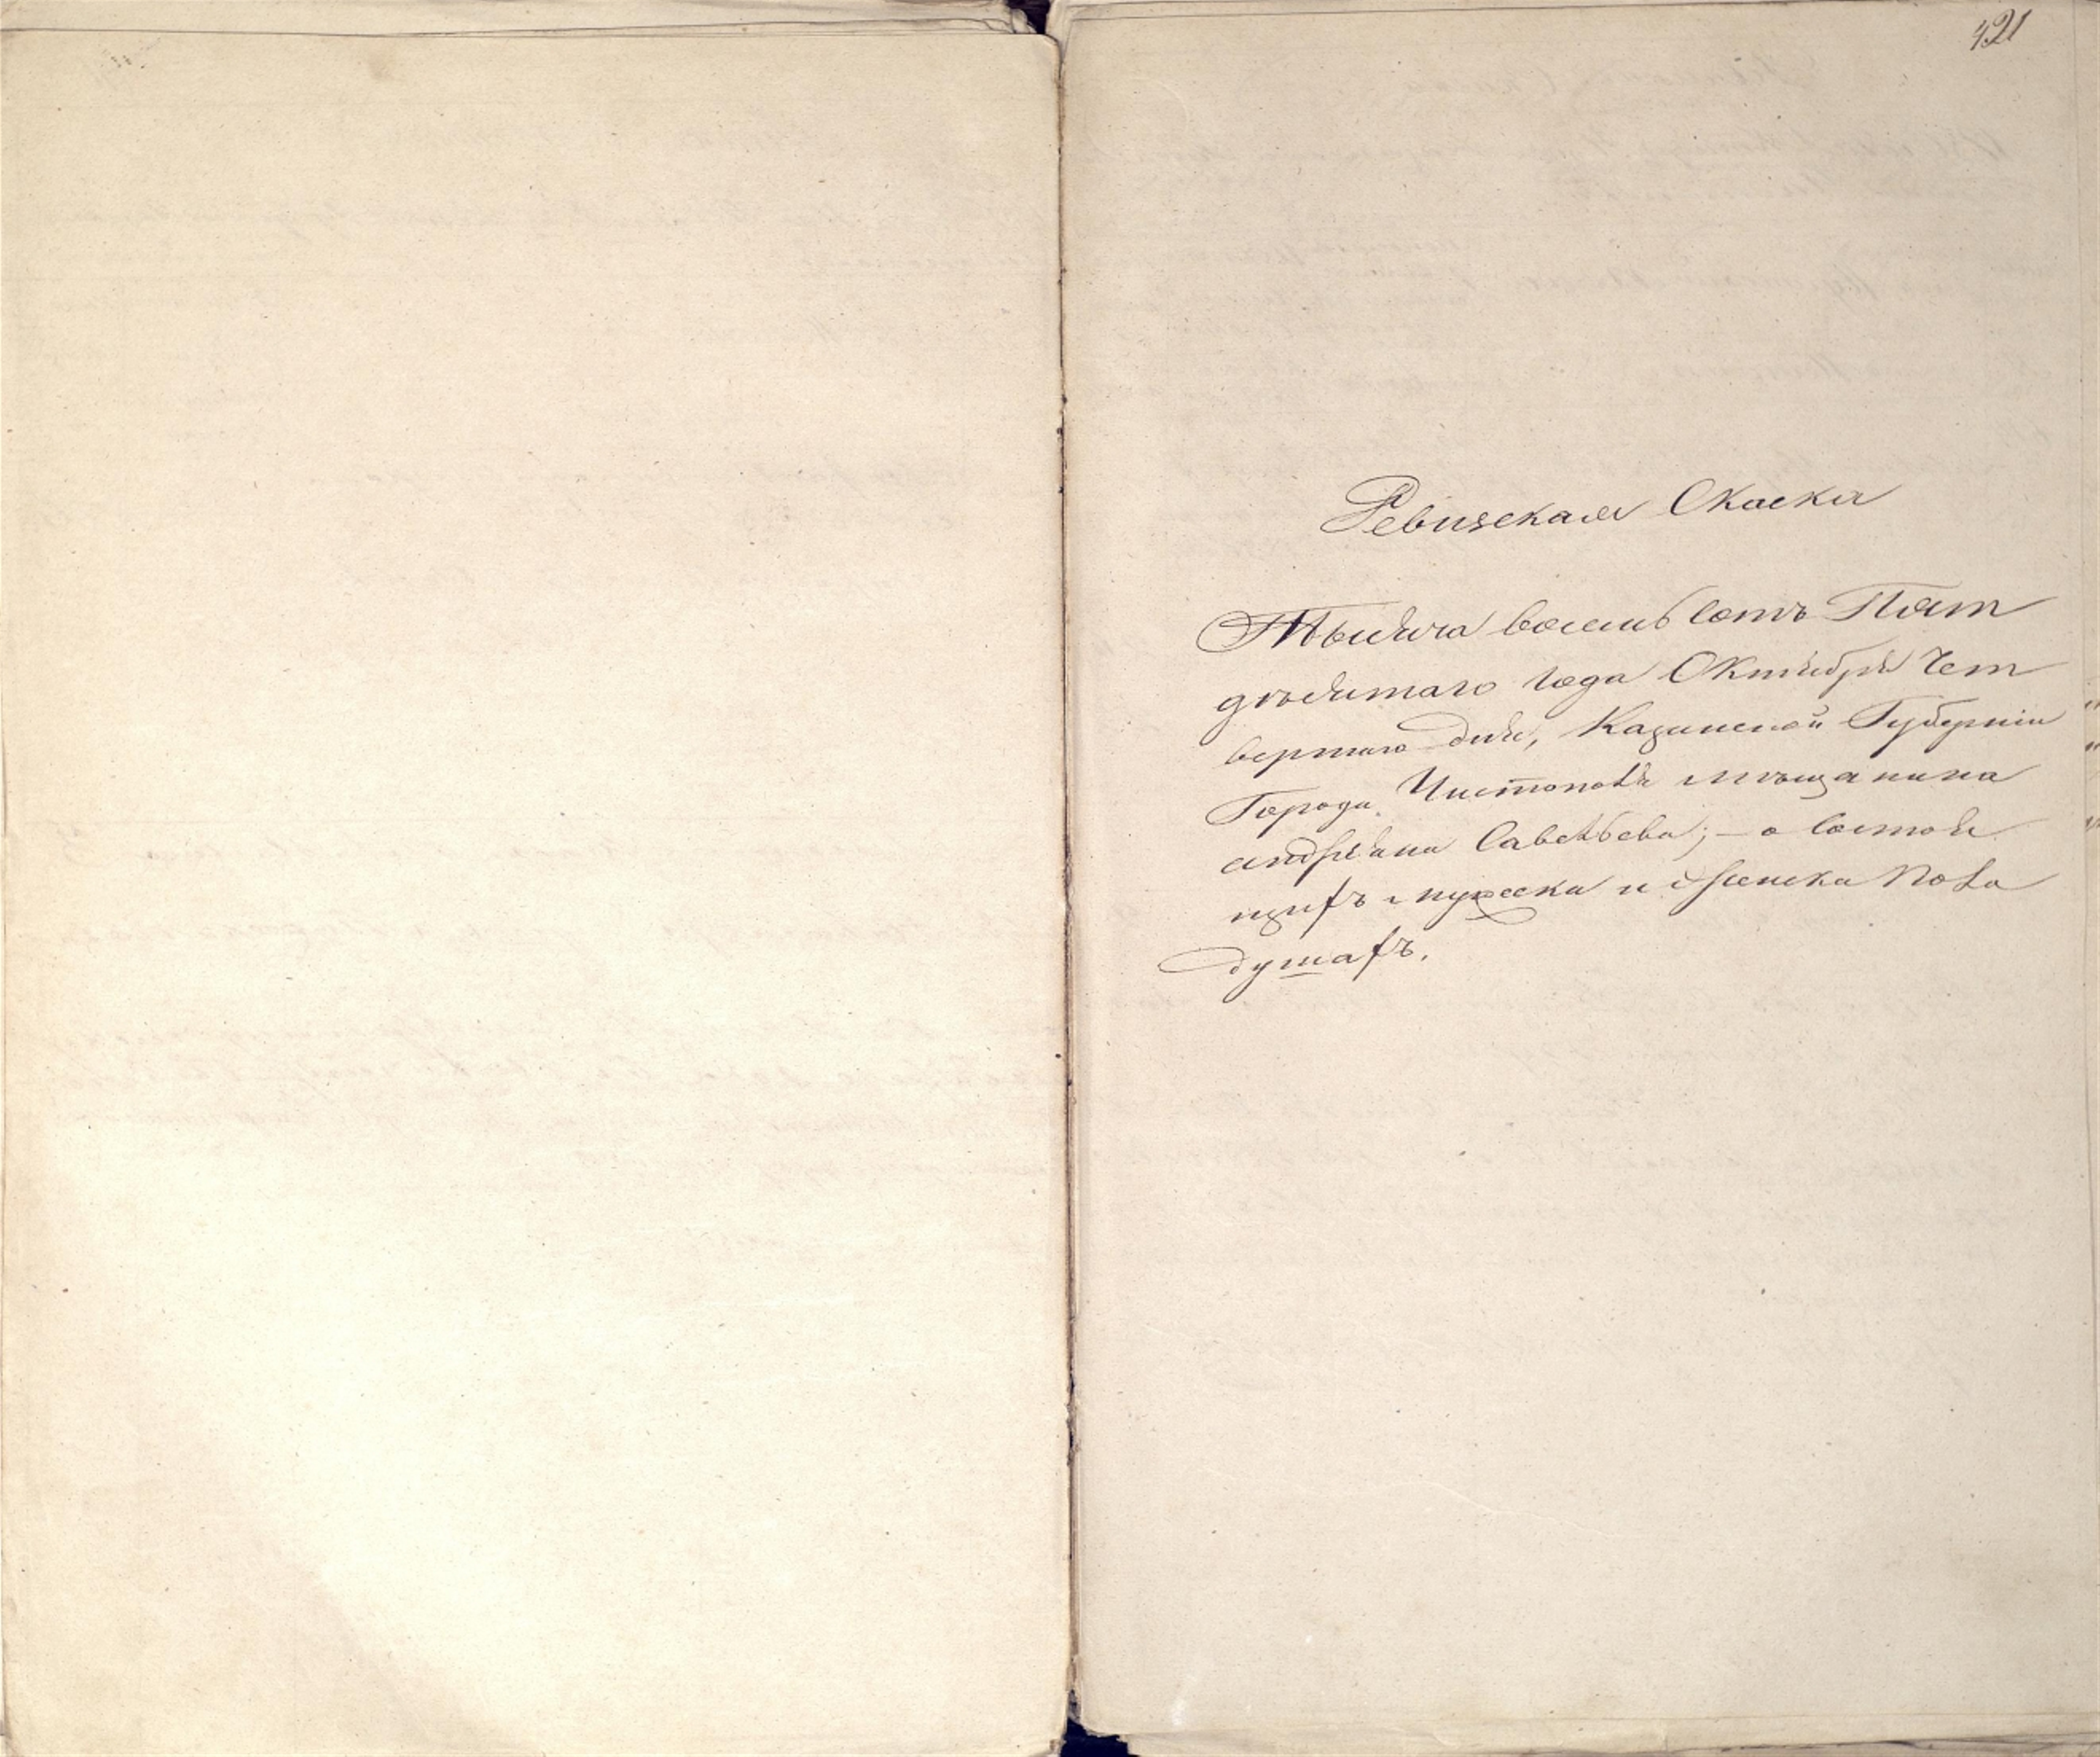 421
Ревизская Скаска
Тысяча восемь сотъ Пят
дѣсятаго года Октября Чет
вертаго дня, Казанской Губернiи
Города Чистополя мѣщанина
андрѣяна Савельева; – о состоя
щихъ мужеска и женска пола
душахъ.